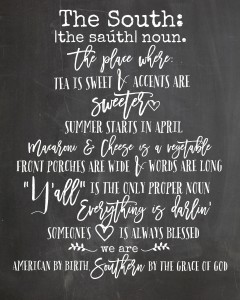 The South:
|the saúth| noun.
the place where:
TEA IS SWEET & ACCENTS ARE
sweeter
SUMMER STARTS IN APRIL
Macaroni & Cheese is a vegetable
FRONT PORCHES ARE WIDE & WORDS ARE LONG
"Y'all" IS THE ONLY PROPER NOUN
Everything is darlin'
SOMEONES IS ALWAYS BLESSED
we are
AMERICAN BY BIRTH, Southern BY THE GRACE OF GOD